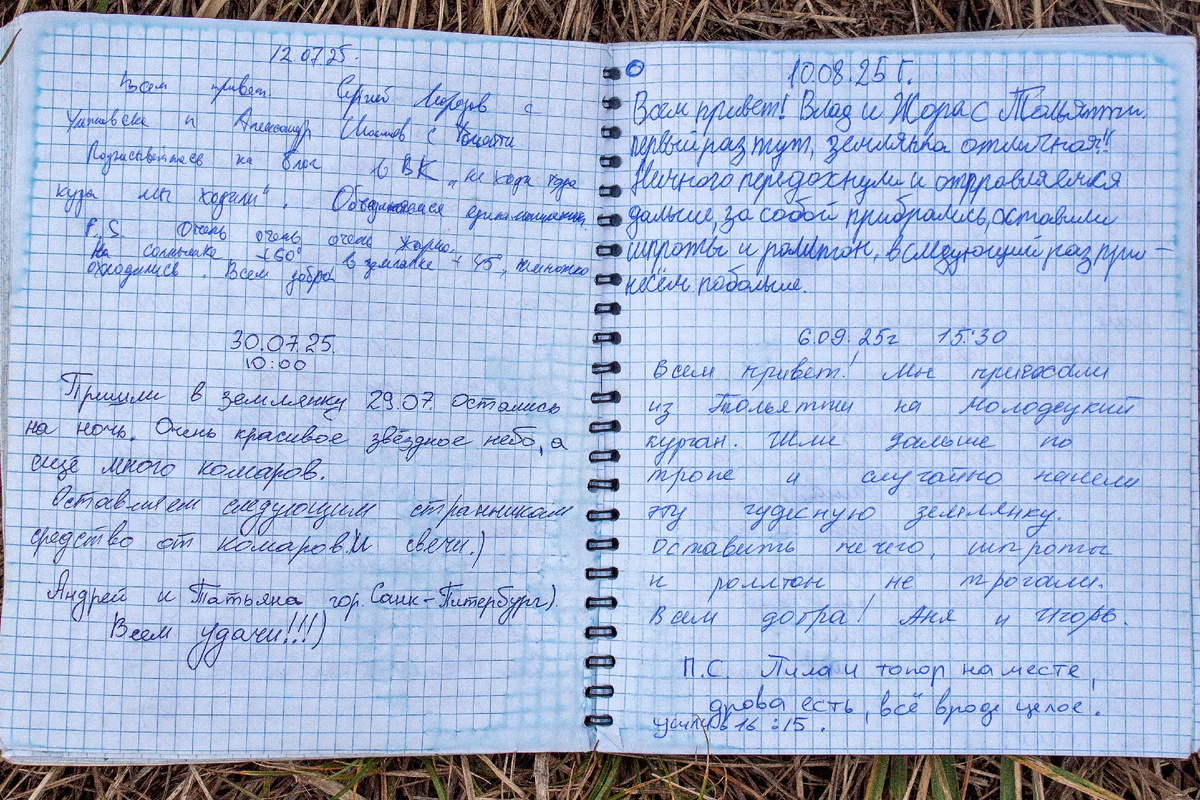 12.07.25.
Всем привет. Сергей с
и Александр с
Подписывайтесь на блог в ВК "не ходи туда
куда мы ходили".
P.S. Очень, очень, очень жарко.
На солнышке +60° в землянке + 45, немножко
охладились. Всем добра
30.07.25.
10:00
Пришли в землянку 29.07. остались
на ночь. Очень красивое звёздное небо, а
ещё много комаров.
Оставляем следующим странникам
средство от комаров и свечи.)
Андрей и Татьяна гор. Санк-Питербург).
Всем удачи!!!)
10.08.25 г.
Всем привет! Влад и Жора с Тольятти.
первый раз тут, землянка отличная!!
Немного передохнули и отправляемся
дальше, за собой прибрались, оставили
шпроты и роллтон, в следующий раз при-
несём побольше.
6.09.25г 15:30
Всем привет! Мы приехали
из Тольятти на Молодецкий
курган. Шли дальше по
тропе и случайно нашли
эту чудесную землянку.
Оставить нечего, шпроты
и роллтон не трогали.
Всем добра! Аня и Игорь.
П.С. Пила и топор на месте,
дрова есть, всё вроде целое.
ушли в 16:15.